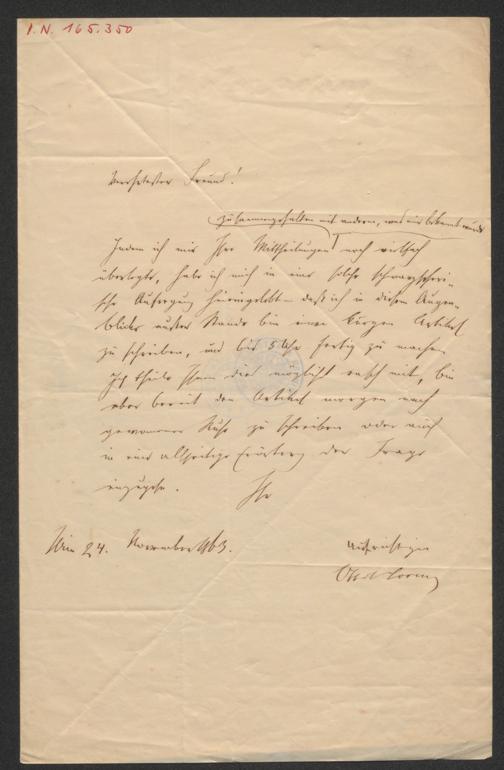 I. N. 165.350
Verehrtester Freund!
zusammengehalten mit andern, was mir bekannt wurde
Indem ich mir Ihre Mittheilungen noch vielfach
überlegte, habe ich mich in eine solche schwarzseheri-
sche Aufregung hineingelebt – daß ich in diesem Augen-
blicke außer Stande bin einen kurzen Artikel
zu schreiben, und bis 5 Uhr fertig zu machen.
Ich theile Ihnen dies möglichst rasch mit, bin
aber bereit den Artikel morgen nach
gewonnener Ruhe zu schreiben oder auch
in eine allseitige Erörterung der Frage
einzugehn. Ihr
Wien 24. November 863. aufrichtiger
Ott. Lorenz